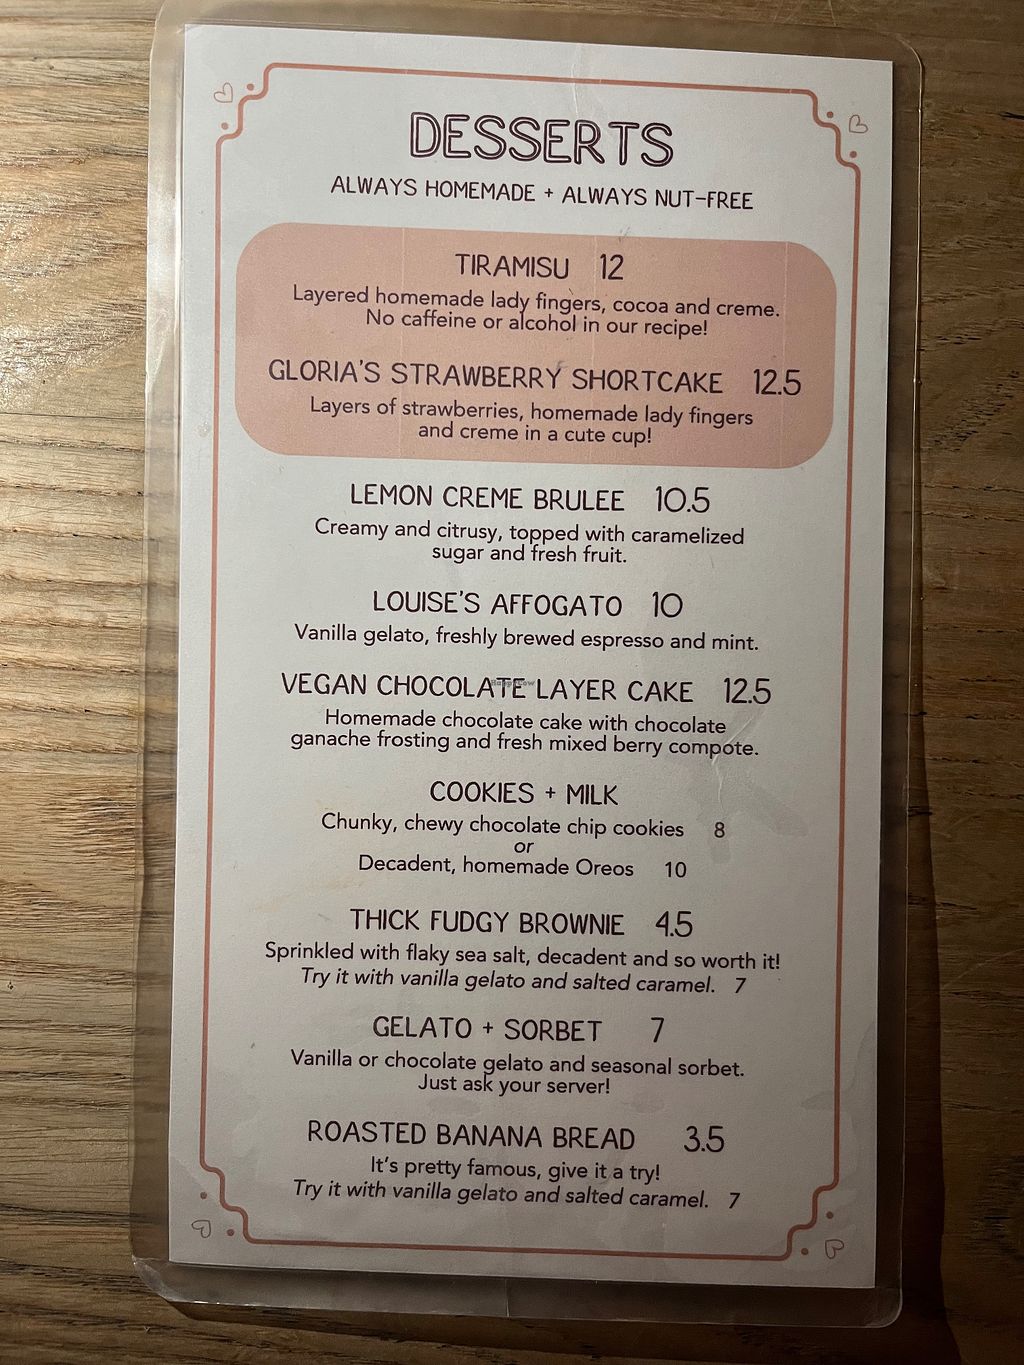 DESSERTS
ALWAYS HOMEMADE + ALWAYS NUT-FREE
TIRAMISU 12
Layered homemade lady fingers, cocoa and creme.
No caffeine or alcohol in our recipe!
GLORIA'S STRAWBERRY SHORTCAKE 12.5
Layers of strawberries, homemade lady fingers
and creme in a cute cup!
LEMON CREME BRULEE 10.5
Creamy and citrusy, topped with caramelized
sugar and fresh fruit.
LOUISE'S AFFOGATO 10
Vanilla gelato, freshly brewed espresso and mint.
VEGAN CHOCOLATE LAYER CAKE 12.5
HappyCow
Homemade chocolate cake with chocolate
ganache frosting and fresh mixed berry compote.
COOKIES + MILK
Chunky, chewy chocolate chip cookies 8
or
Decadent, homemade Oreos 10
THICK FUDGY BROWNIE 4.5
Sprinkled with flaky sea salt, decadent and so worth it!
Try it with vanilla gelato and salted caramel. 7
GELATO + SORBET 7
Vanilla or chocolate gelato and seasonal sorbet.
Just ask your server!
ROASTED BANANA BREAD 3.5
It's pretty famous, give it a try!
Try it with vanilla gelato and salted caramel. 7